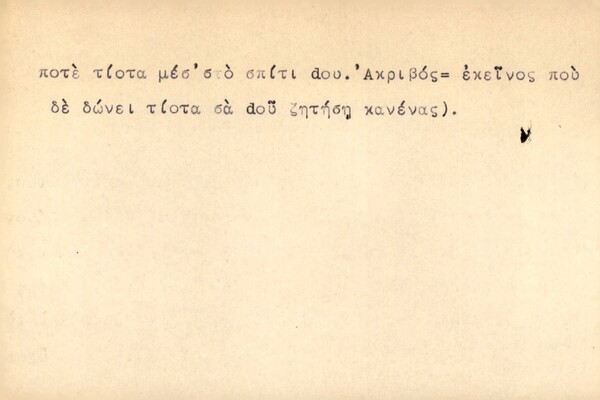 ποτὲ τίοτα μέσ'στὸ σπίτι dου.Ἀκριβός= ἐκεῖνος ποὺ
δὲ δώνει τίοτα σὰ dοῦ ζητήσῃ κανένας).